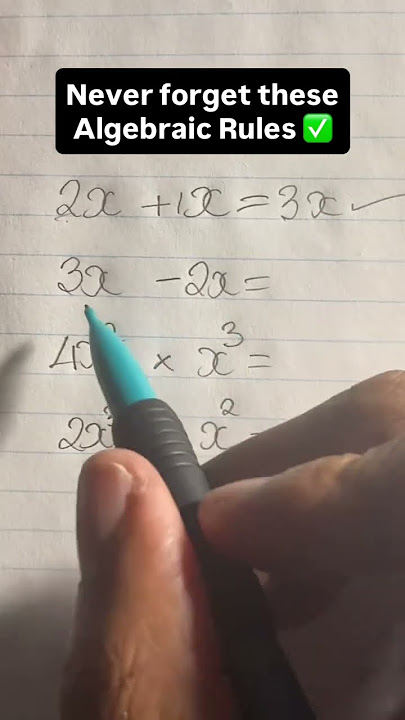 Never forget these
Algebraic Rules ✅
2x + 1x = 3x ✓
3x - 2x =
4x × x³ =
2x x²